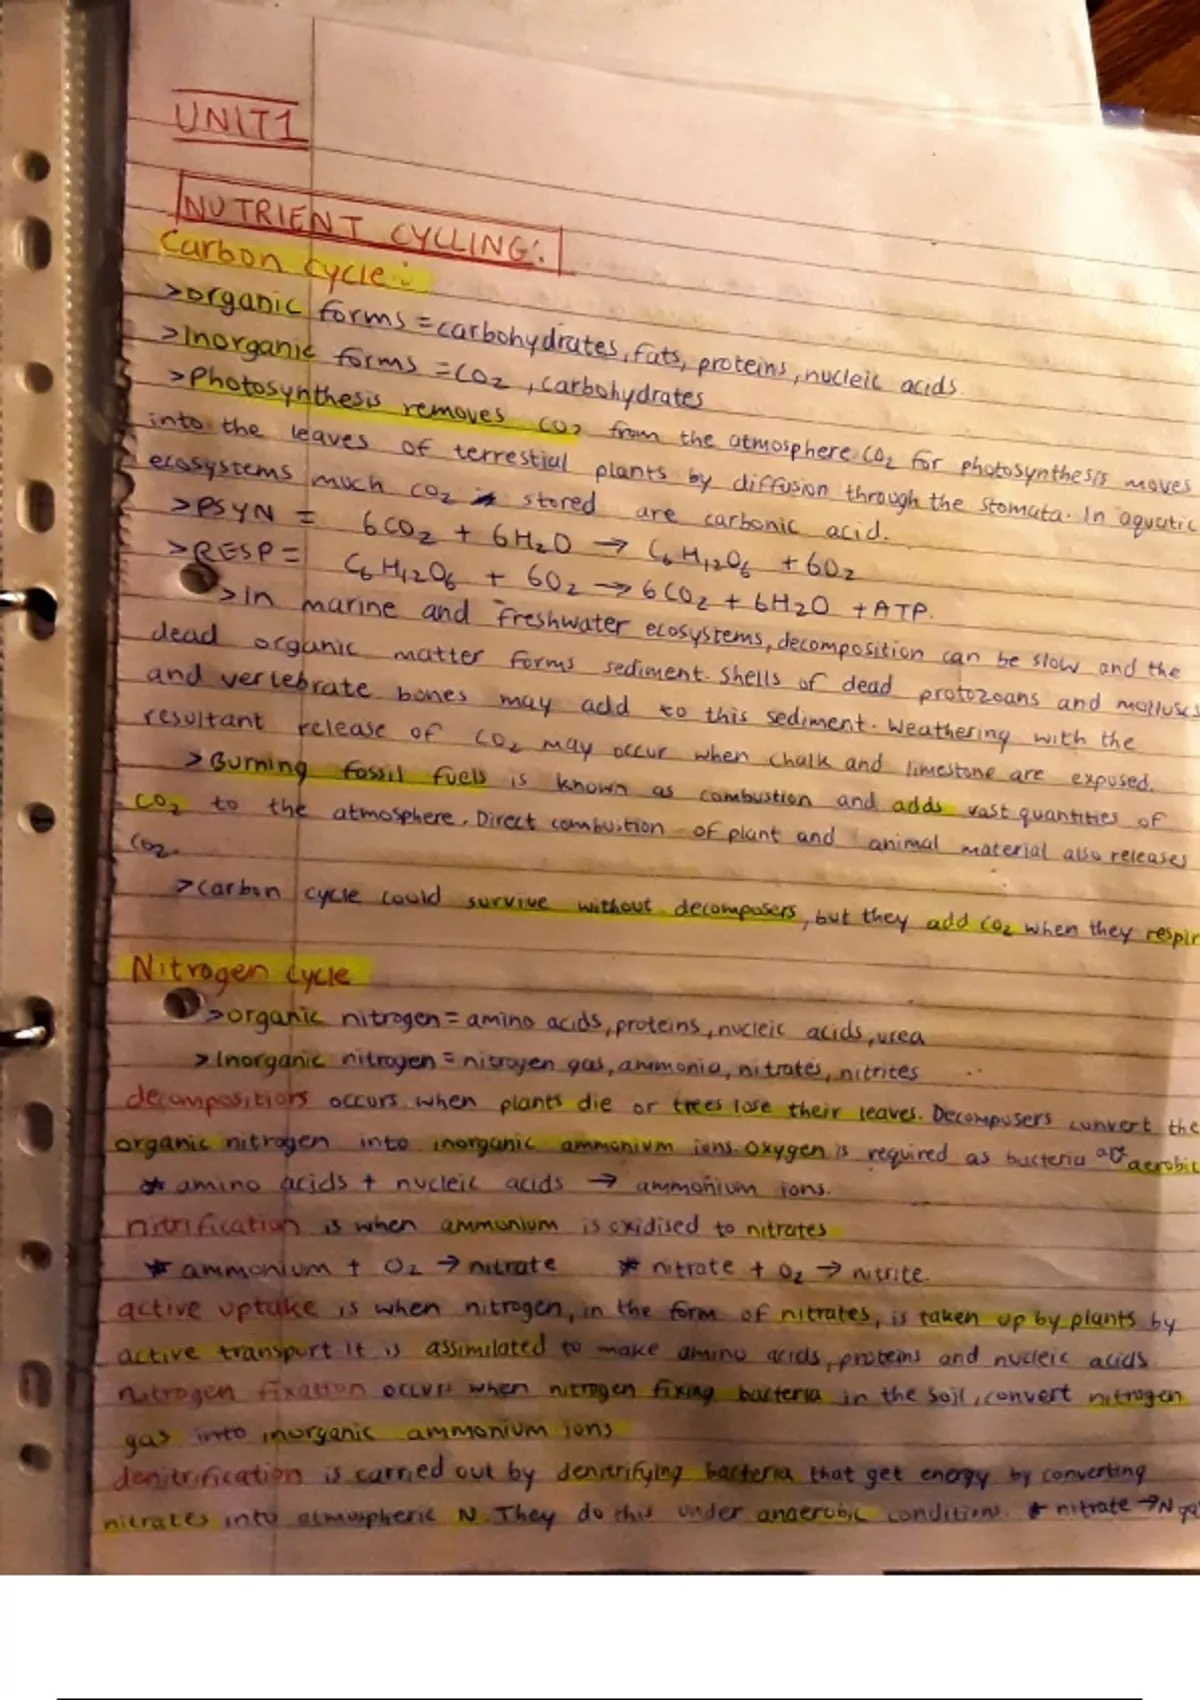 UNIT1
NUTRIENT CYCLING:
Carbon cycle:
>organic forms = carbohydrates, fats, proteins, nucleic acids.
>Inorganic forms = CO2, carbohydrates
>Photosynthesis removes CO2 from the atmosphere. CO2 for photosynthesis moves
into the leaves of terrestial plants by diffusion through the stomata. In aquatic
ecosystems much CO2 is stored are carbonic acid.
>PSYN = 6CO2 + 6H2O → C6H12O6 + 6O2
>RESP = C6H12O6 + 6O2 → 6CO2 + 6H2O + ATP.
>In marine and freshwater ecosystems, decomposition can be slow and the
dead organic matter forms sediment. Shells of dead protozoans and molluscs
and vertebrate bones may add to this sediment. Weathering with the
resultant release of CO2 may occur when chalk and limestone are exposed.
>Burning fossil fuels is known as combustion and adds vast quantities of
CO2 to the atmosphere. Direct combustion of plant and animal material also releases
CO2.
>Carbon cycle could survive without decomposers, but they add CO2 when they respir
Nitrogen cycle
>organic nitrogen = amino acids, proteins, nucleic acids, urea
>Inorganic nitrogen = nitrogen gas, ammonia, nitrates, nitrites
decompositions occurs when plants die or trees lose their leaves. Decomposers convert the
organic nitrogen into inorganic ammonium ions. Oxygen is required as bacteria are aerobic
* amino acids + nucleic acids → ammonium ions.
nitrification is when ammonium is oxidised to nitrates
* ammonium + O2 → nitrate * nitrate + O2 → nitrite.
active uptake is when nitrogen, in the form of nitrates, is taken up by plants by
active transport. It is assimilated to make amino acids, proteins and nucleic acids
nitrogen fixation occurs when nitrogen fixing bacteria in the soil, convert nitrogen
gas into inorganic ammonium ions
denitrification is carried out by denitrifying bacteria that get energy by converting
nitrates into atmospheric N. They do this under anaerobic conditions. * nitrate → N ga